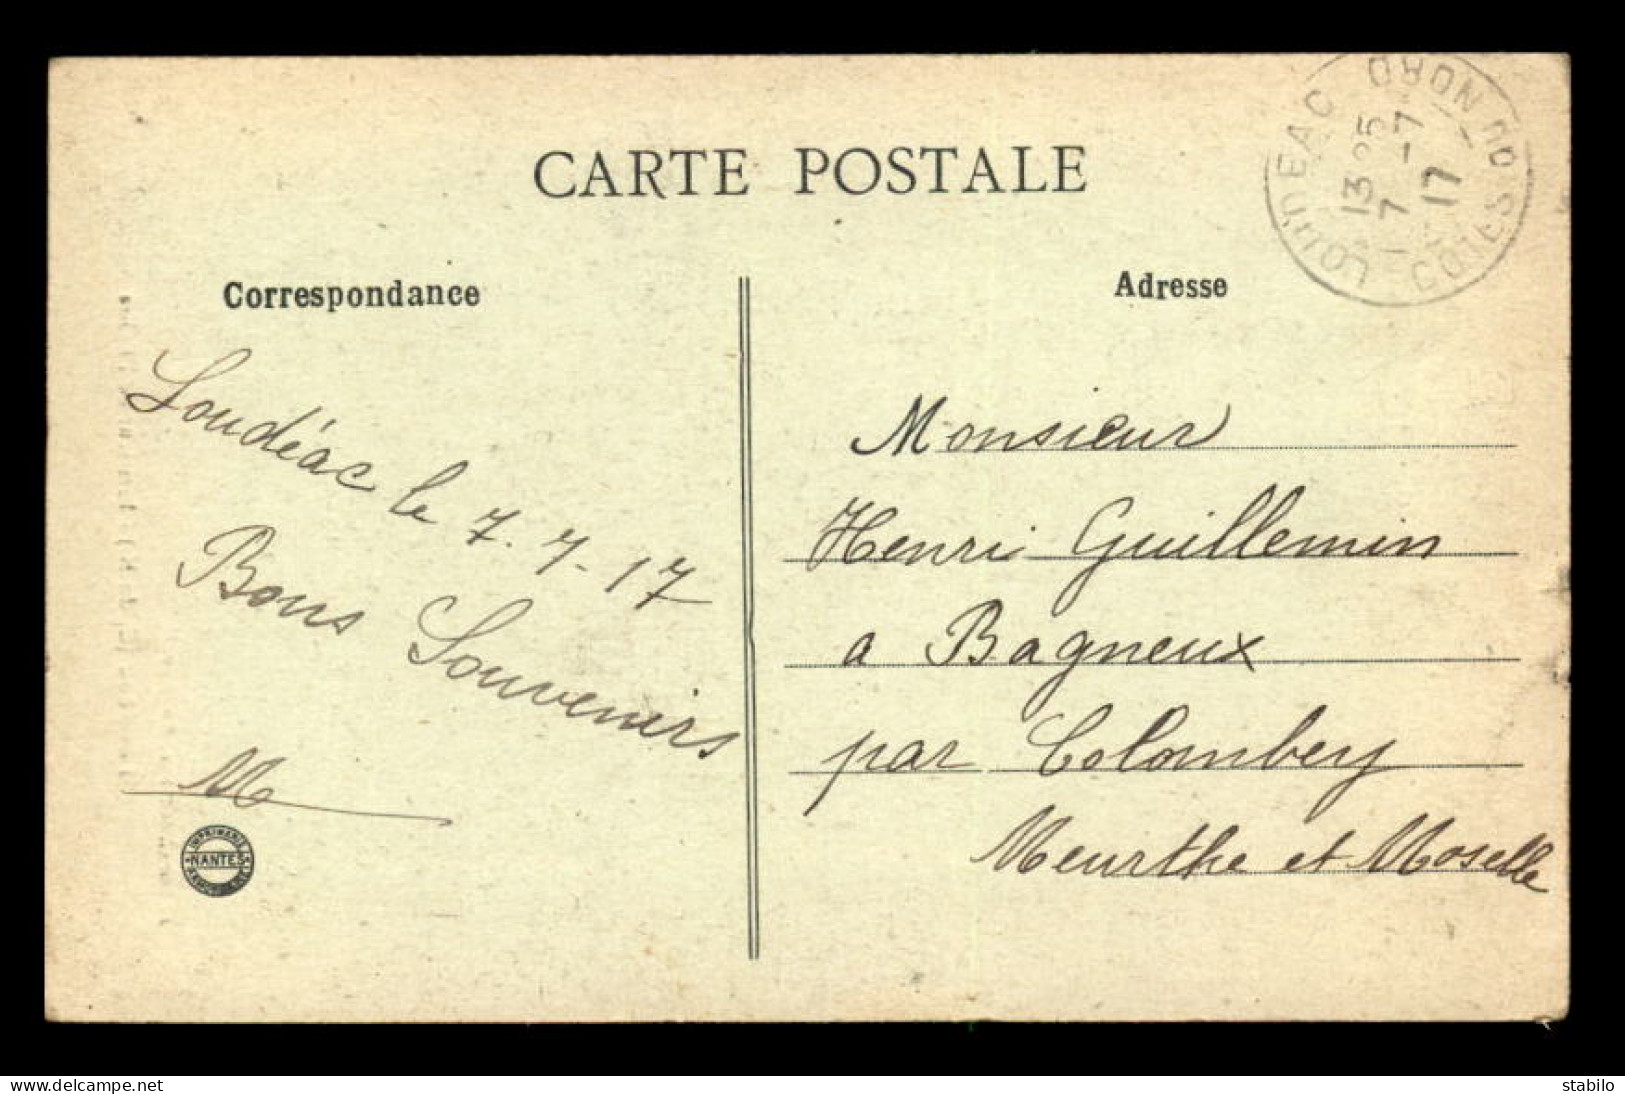 CARTE POSTALE
Correspondance
Adresse
LOUDEAC
COTES DU NORD
13 25
7 - 7
17
Loudéac le 7.7-17
Bons Souvenirs
M
Monsieur
Henri Guillemin
a Bagneux
par Colombey
Meurthe et Moselle
IMPRIMERIE
NANTES
delcampe.net
stabilo